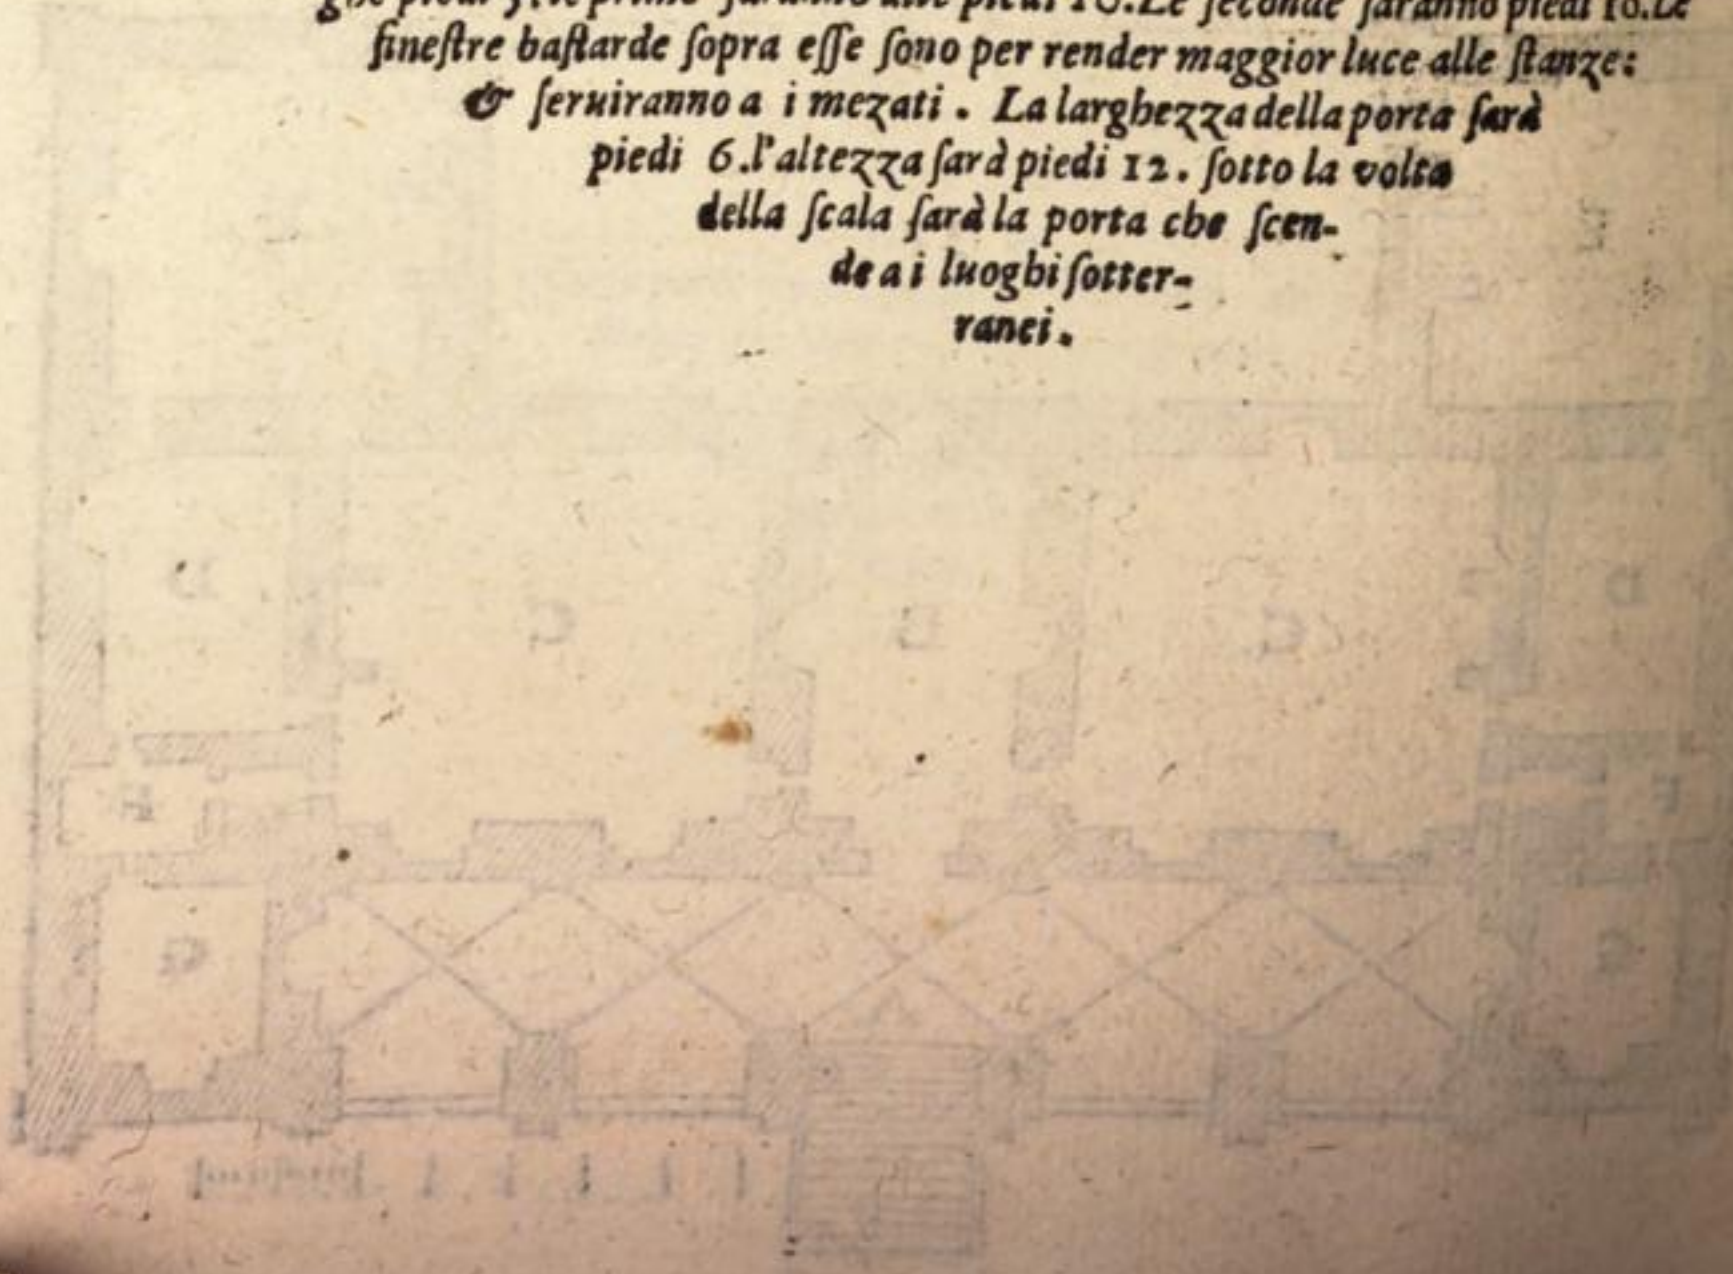 ghe piedi le prime saranno alte piedi 10. Le ſeconde ſaranno piedi 10. Le
fineſtre baſtarde ſopra eſſe ſono per render maggior luce alle ſtanze:
& ſeruiranno a i mezati. La larghezza della porta ſarà
piedi 6. l'altezza ſarà piedi 12. ſotto la volta
della ſcala ſarà la porta che ſcen-
de a i luoghi ſotter-
ranei.
D
C
B
C
D
F
F
G
A
G